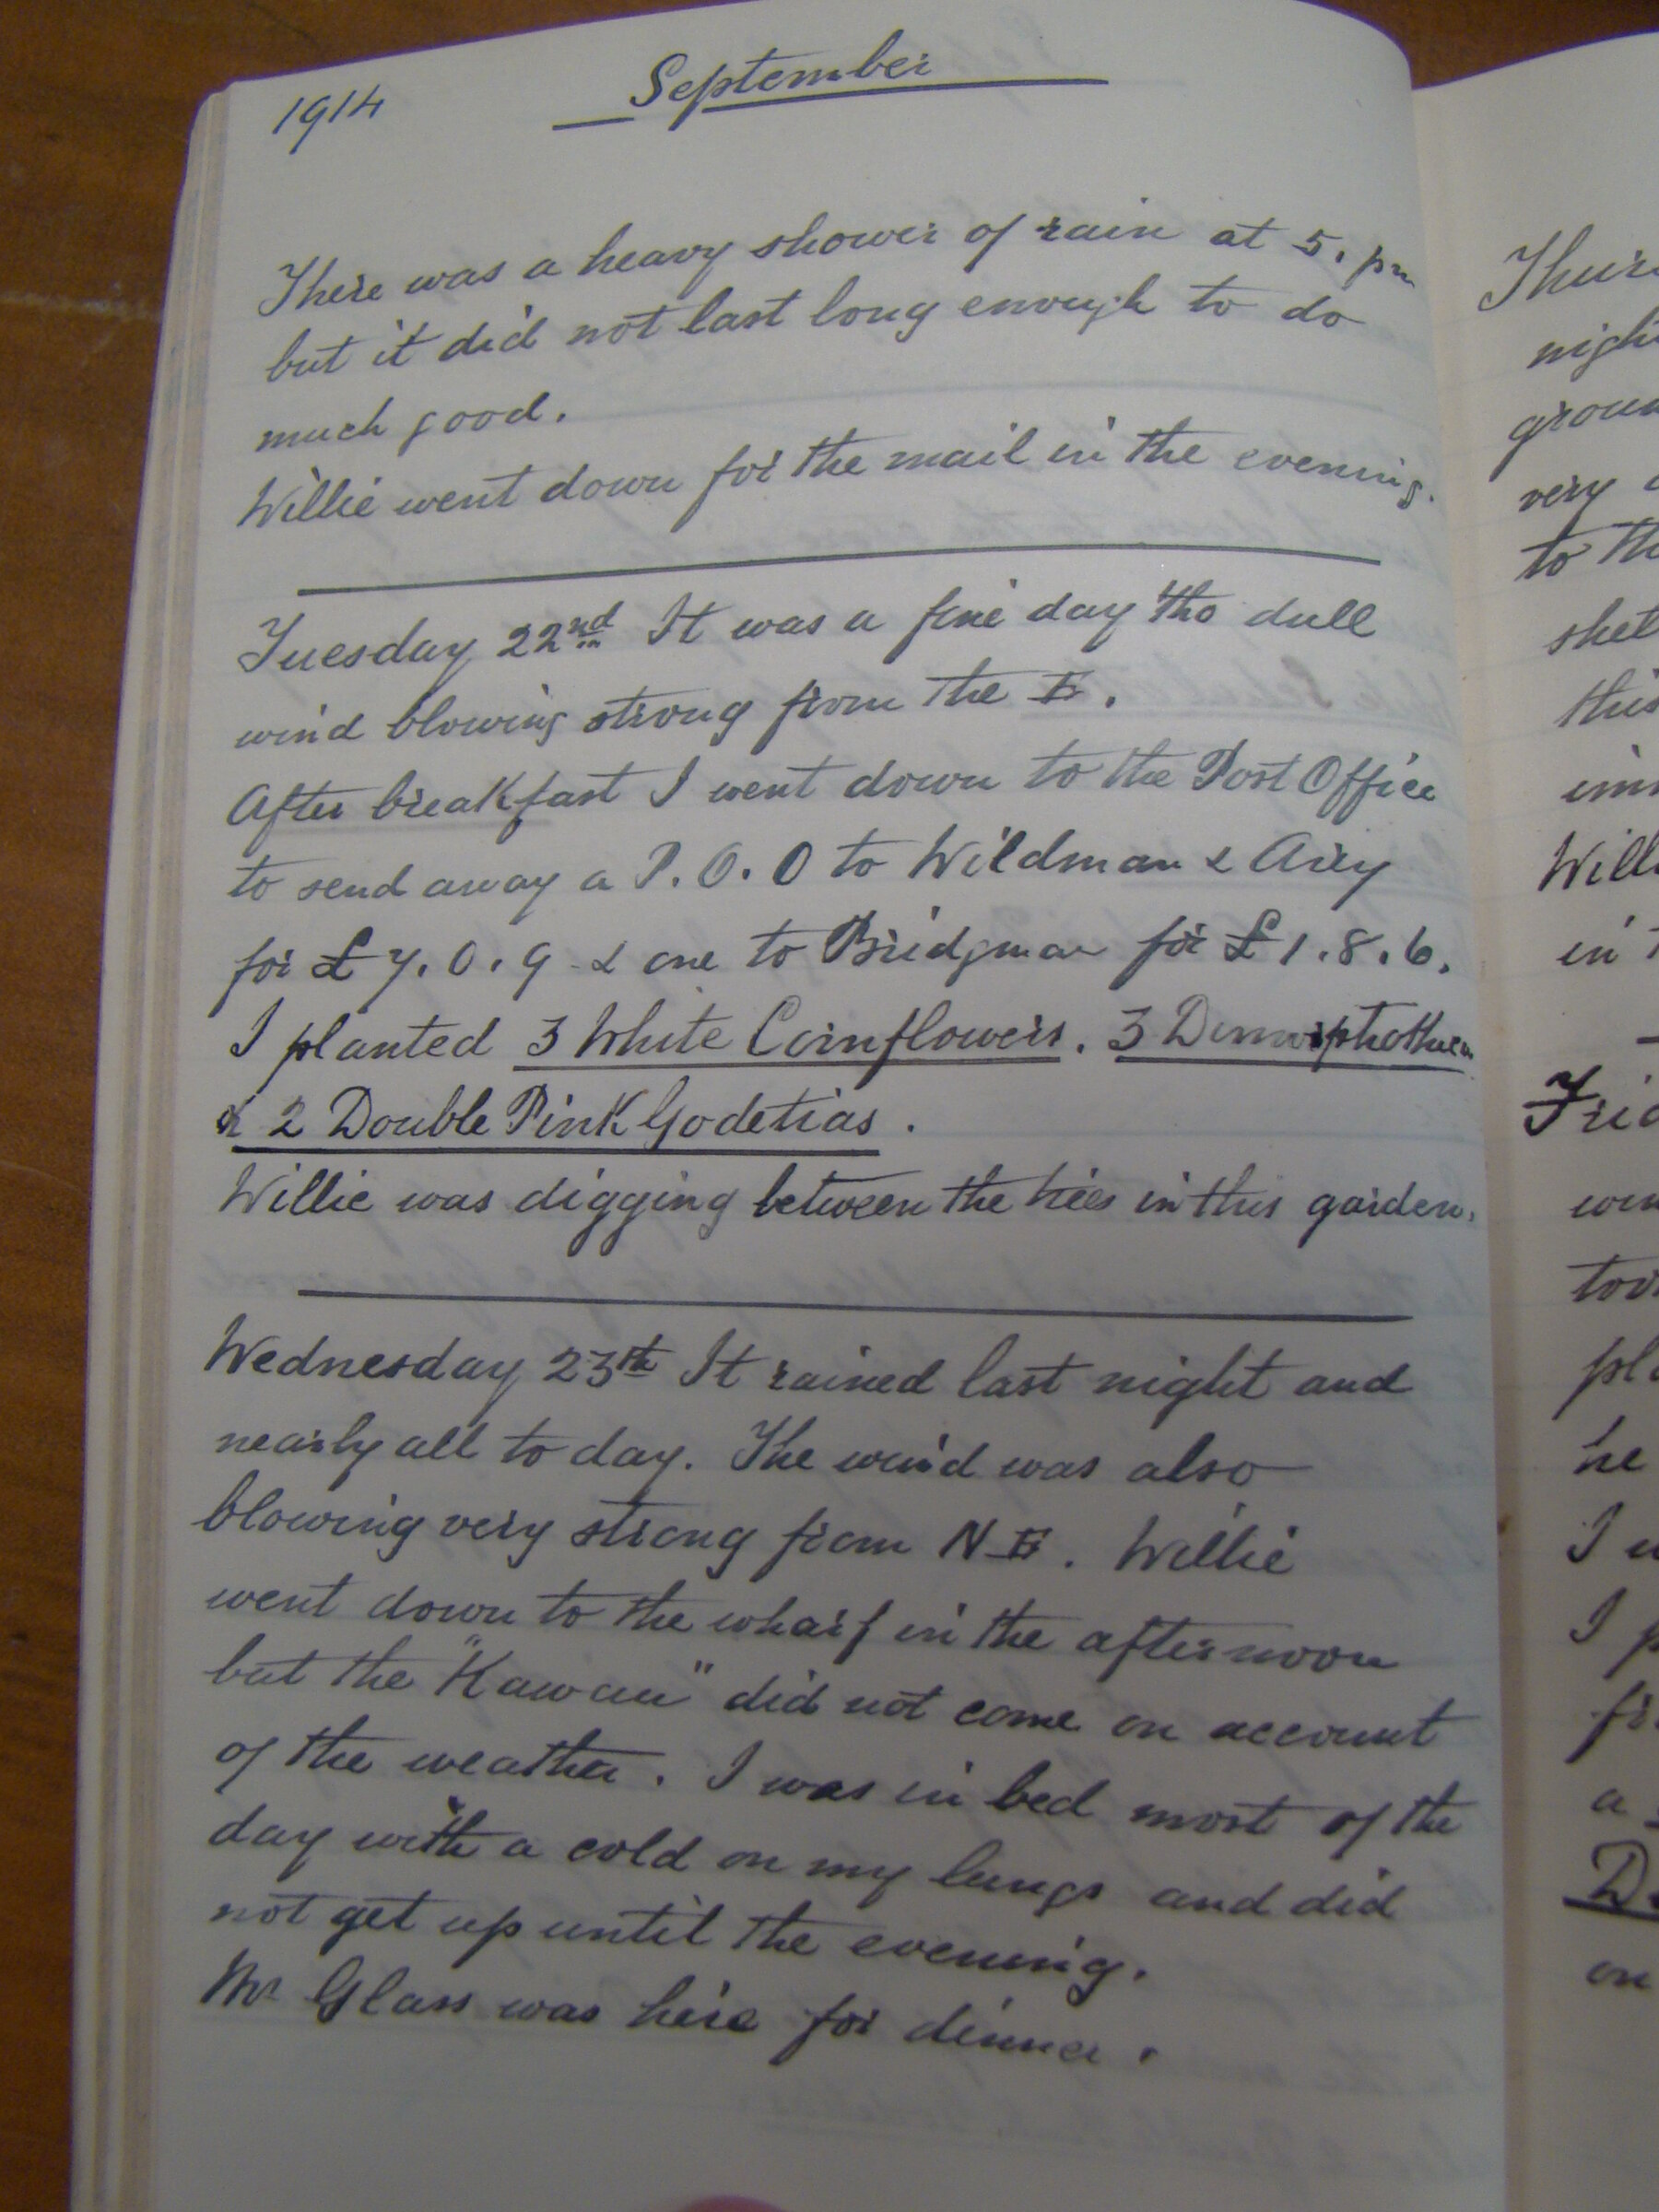 1914 September
There was a heavy shower of rain at 5. pm
but it did not last long enough to do
much good.
Willie went down for the mail in the evening.
Tuesday 22nd It was a fine day tho dull
wind blowing strong from the E.
After breakfast I went down to the Post Office
to send away a P.O.O to Wildman & Arey
for £7.0.9 & one to Bridgman for £1.8.6.
I planted 3 White Cornflowers. 3
& 2 Double Pink Godetias.
Willie was digging between the trees in this garden.
Wednesday 23th It rained last night and
nearly all to day. The wind was also
blowing very strong from N E. Willie
went down to the wharf in the afternoon
but the "Kawau" did not come on account
of the weather. I was in bed most of the
day with a cold on my lungs and did
not get up until the evening.
Mr Glass was here for dinner.
night
very
to th
this
Will
in
he
I
I
a
on